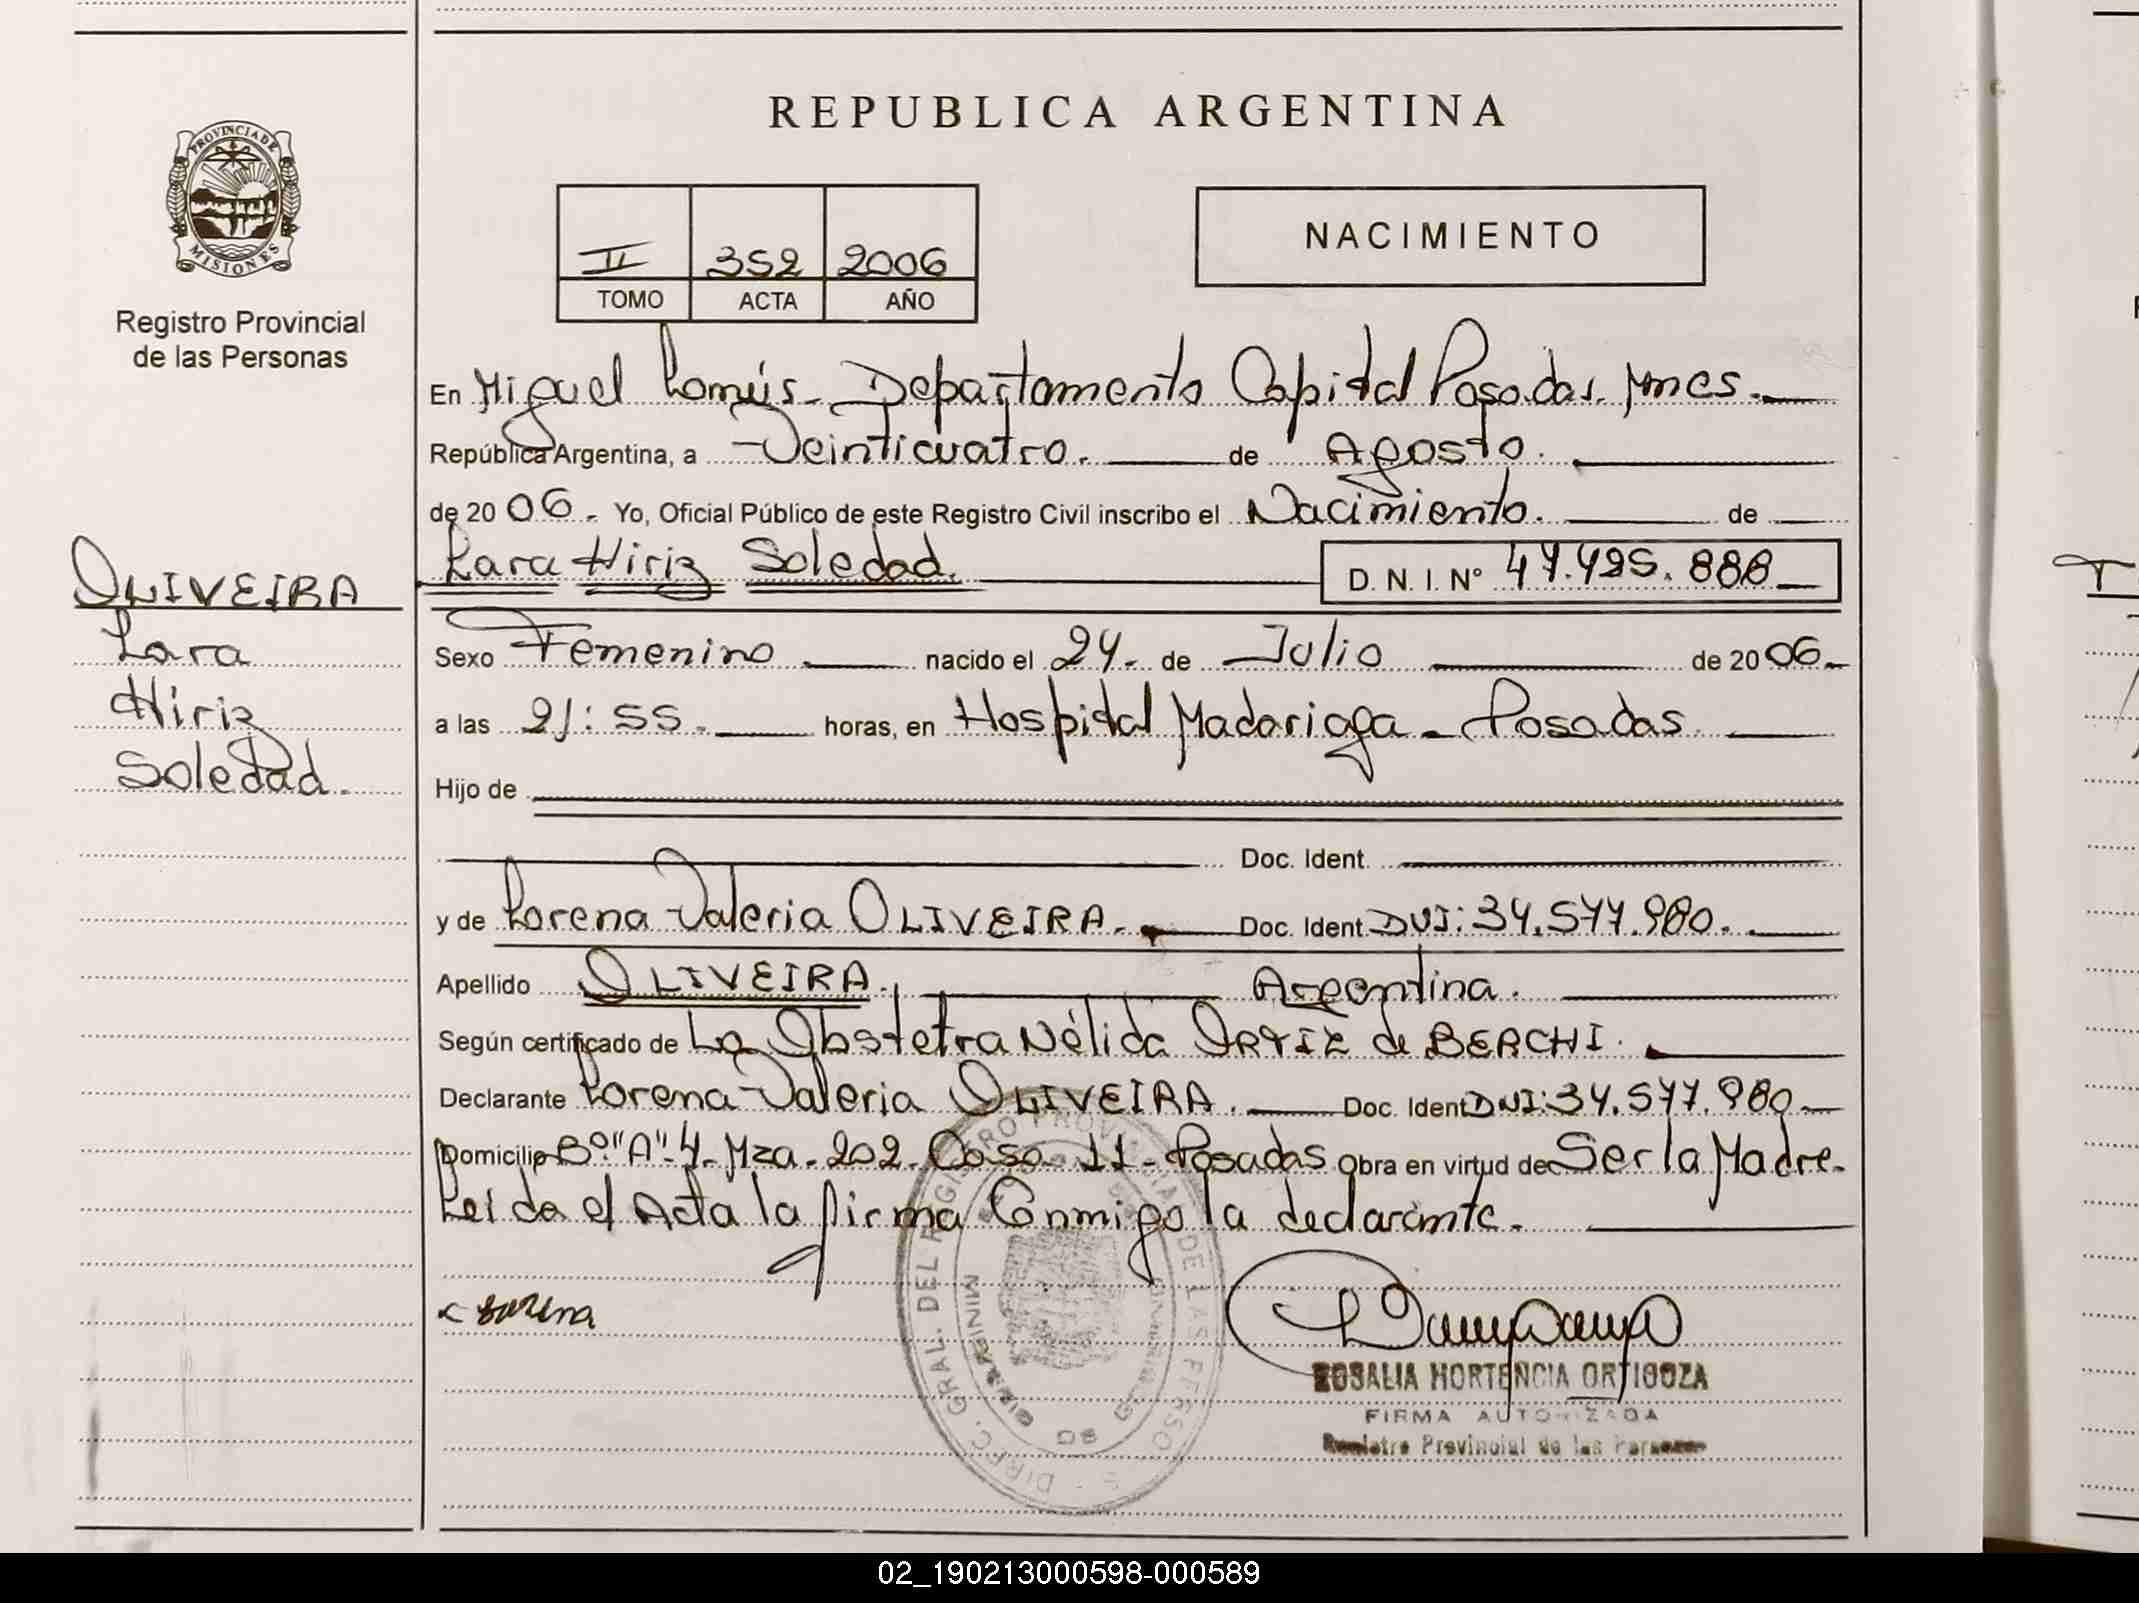 REPUBLICA ARGENTINA
PROVINCIA DE
MISIONES
Registro Provincial
de las Personas
II 352 2006
TOMO ACTA AÑO
NACIMIENTO
En Miguel Lanús. Departamento Capital Posadas. Mnes.
República Argentina, a Veinticuatro. de Agosto.
de 2006. Yo, Oficial Público de este Registro Civil inscribo el Nacimiento. de
Lara Hiriz Soledad. D. N. I. N° 47.495.888
OLIVEIRA
Lara
Hiriz
Soledad.
Sexo Femenino nacido el 24. de Julio de 2006.
a las 21:55. horas, en Hospital Madariaga - Posadas
Hijo de
Doc. Ident.
y de Lorena Valeria OLIVEIRA. Doc. Ident. DNI: 34.577.980.
Apellido OLIVEIRA. Argentina.
Según certificado de La Obstetra Nélida ORTIZ de BERCHI.
Declarante Lorena Valeria OLIVEIRA. Doc. Ident. DNI: 34.577.980
Domicilio B° "A"-4. Mza. 202. Casa 11 - Posadas Obra en virtud de Ser la Madre.
Leida el Acta la firma Conmigo la declarante.
Lorena
ROSALIA HORTENCIA ORTIGOZA
FIRMA AUTORIZADA
Registro Provincial de las Personas
DIREC. GRAL. DEL REGISTRO PROVINCIAL DE LAS PERSONAS
02_190213000598-000589